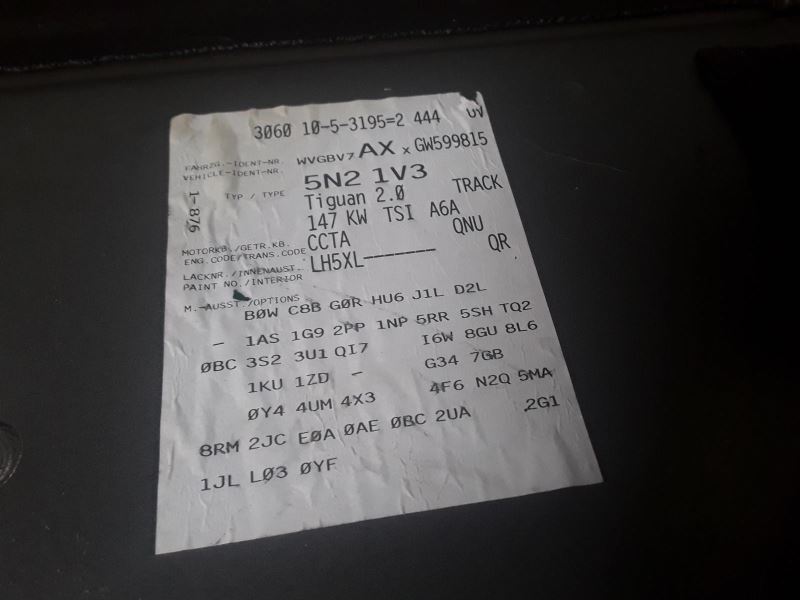 3060 10-5-3195=2 444 UV
FAHRZG.-IDENT-NR.
VEHICLE-IDENT-NR. WVGBV7AX x GW599815
1- 876
TYP / TYPE 5N2 1V3
Tiguan 2.0 TRACK
147 KW TSI A6A
MOTORKB./GETR.KB.
ENG.CODE/TRANS.CODE CCTA QNU
LACKNR./INNENAUST.
PAINT NO./INTERIOR LH5XL------- QR
M.-AUSST./OPTIONS
BØW C8B GØR HU6 J1L D2L
- 1AS 1G9 2PP 1NP 5RR 5SH TQ2
ØBC 3S2 3U1 QI7 I6W 8GU 8L6
1KU 1ZD - G34 7GB
ØY4 4UM 4X3 4F6 N2Q 5MA
8RM 2JC EØA ØAE ØBC 2UA 2G1
1JL LØ3 ØYF